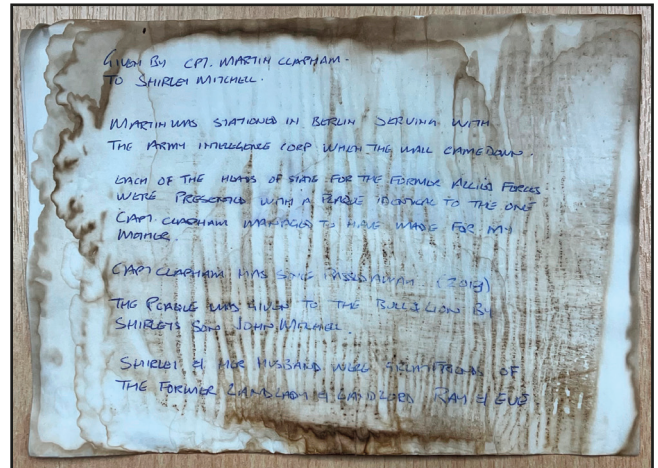 GIVEN BY CPT. MARTIN CLAPHAM.
TO SHIRLEY MITCHELL.
MARTIN WAS STATIONED IN BERLIN SERVING WITH
THE ARMY INTELLIGENCE CORP WHEN THE WALL CAME DOWN.
EACH OF THE HEADS OF STATE FOR THE FORMER ALLIED FORCES
WERE PRESENTED WITH A PLAQUE IDENTICAL TO THE ONE
CAPT. CLAPHAM MANAGED TO HAVE MADE FOR MY
MOTHER.
CAPT CLAPHAM HAS SINCE PASSED AWAY (2018)
THE PLAQUE WAS GIVEN TO THE BULL & LION BY
SHIRLEYS SON JOHN MITCHELL.
SHIRLEY & HER HUSBAND WERE GREAT FRIENDS OF
THE FORMER LANDLADY & LANDLORD RAY & EVE